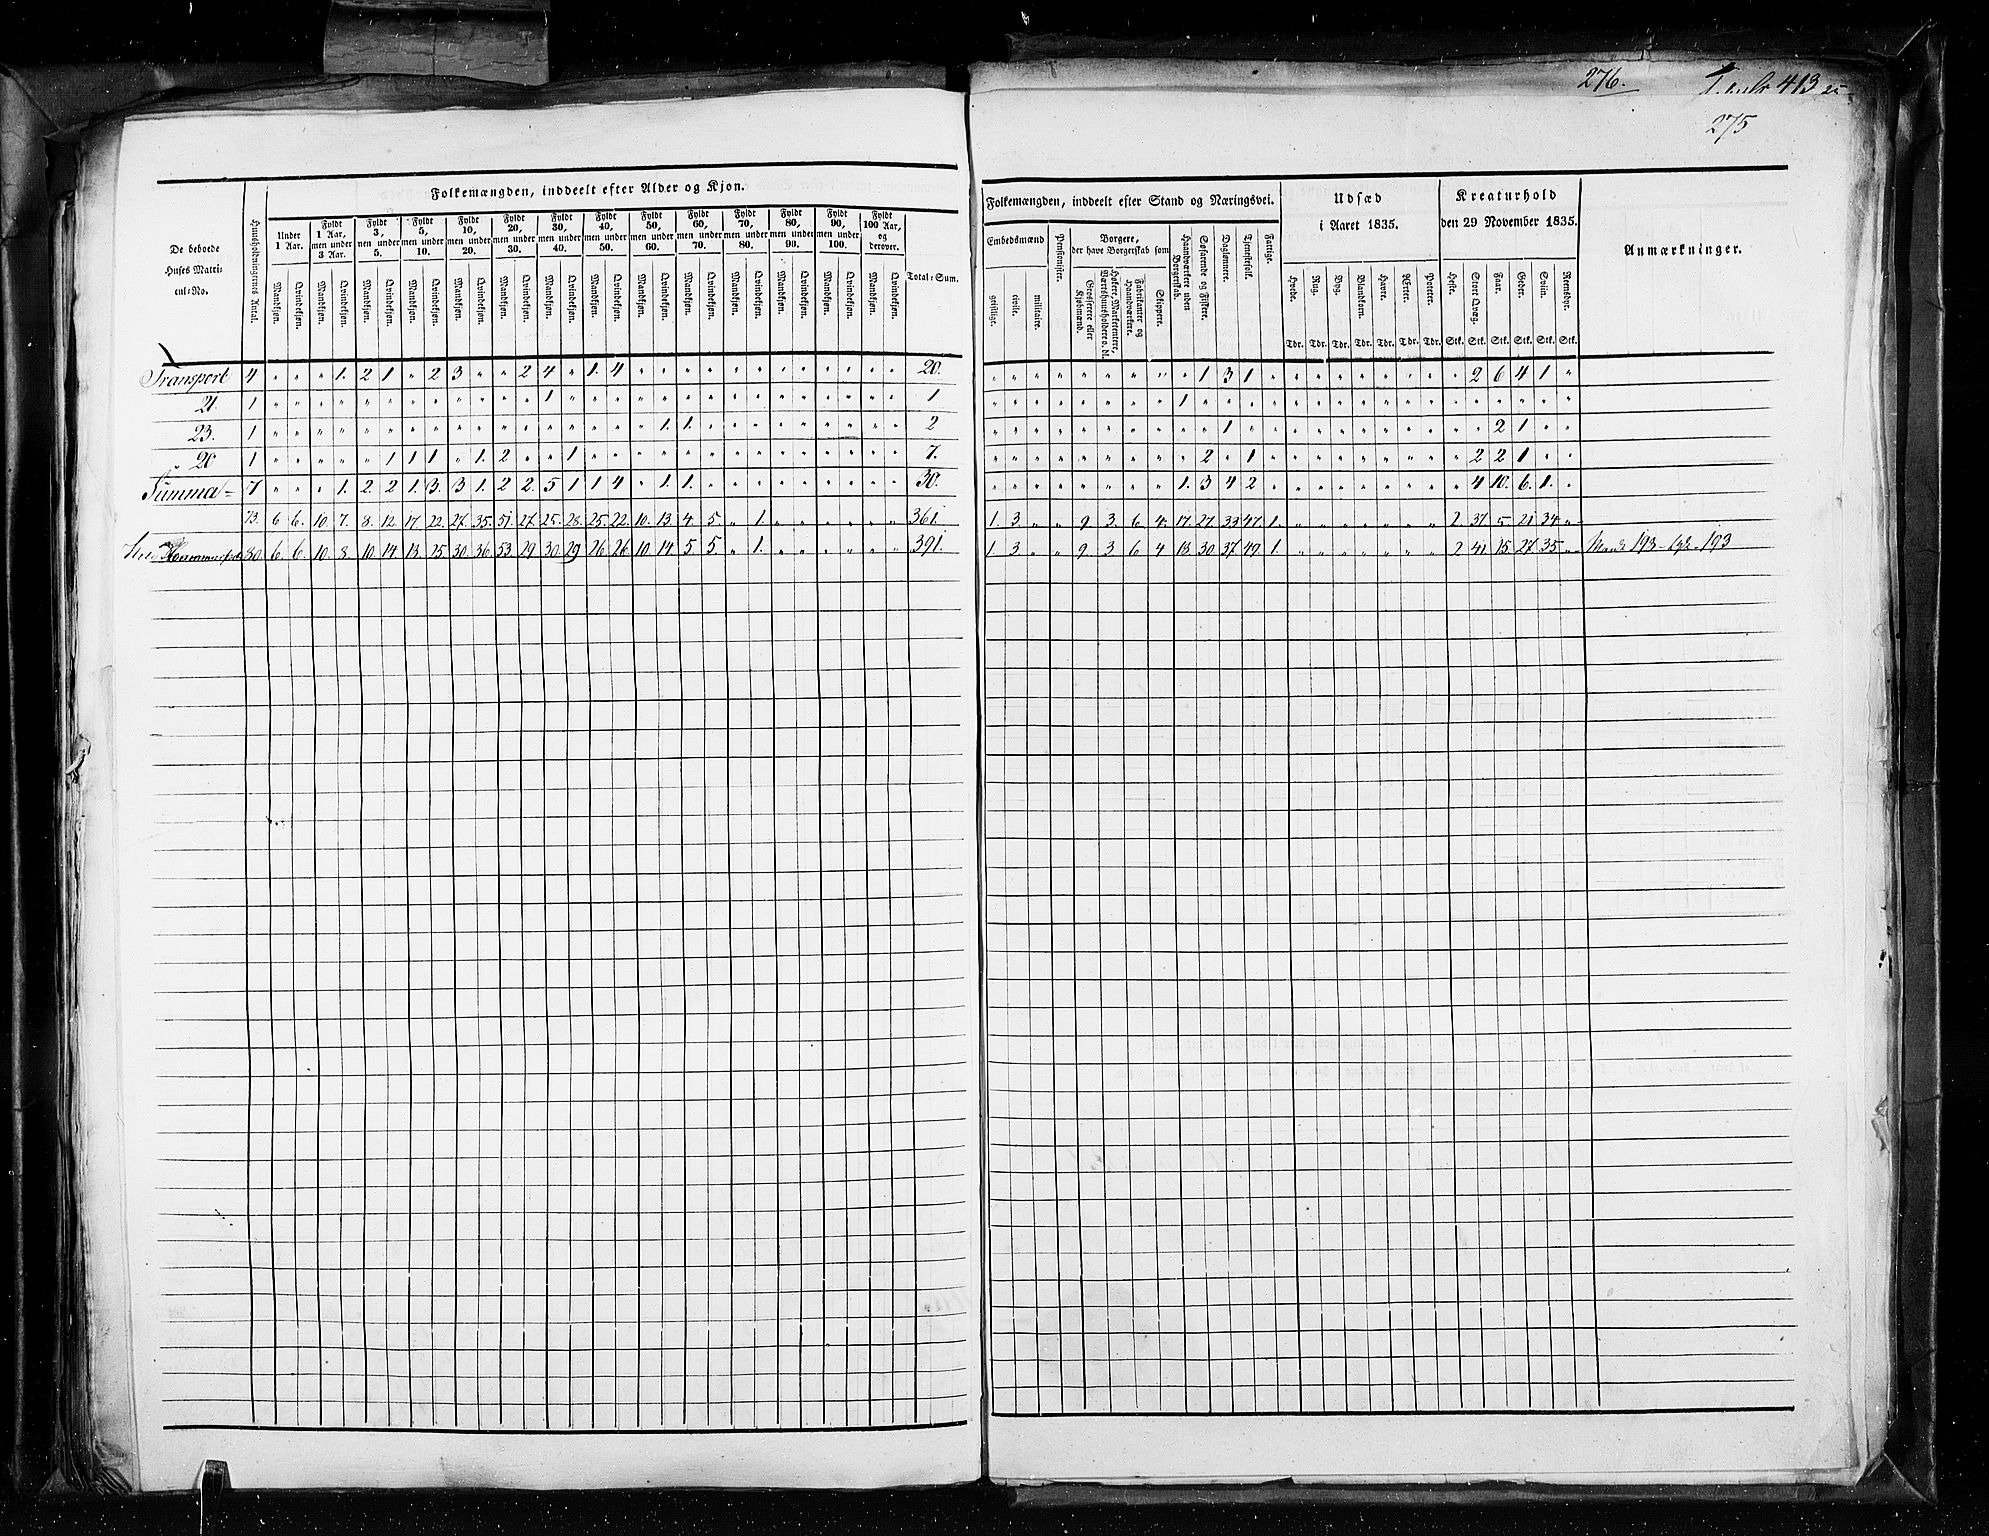 276.
413
275
Folkemængden, inddeelt efter Alder og Kjøn.
De beboede Huses Matricul-No.
Huusholdningernes Antal.
Under 1 Aar.
Fyldt 1 Aar, men under 3 Aar.
Fyldt 3, men under 5.
Fyldt 5, men under 10.
Fyldt 10, men under 20.
Fyldt 20, men under 30.
Fyldt 30, men under 40.
Fyldt 40, men under 50.
Fyldt 50, men under 60.
Fyldt 60, men under 70.
Fyldt 70, men under 80.
Fyldt 80, men under 90.
Fyldt 90, men under 100.
Fyldt 100 Aar, og derover.
Mandkjøn. Qvindekjøn. Mandkjøn. Qvindekjøn. Mandkjøn. Qvindekjøn. Mandkjøn. Qvindekjøn. Mandkjøn. Qvindekjøn. Mandkjøn. Qvindekjøn. Mandkjøn. Qvindekjøn. Mandkjøn. Qvindekjøn. Mandkjøn. Qvindekjøn. Mandkjøn. Qvindekjøn. Mandkjøn. Qvindekjøn. Mandkjøn. Qvindekjøn. Mandkjøn. Qvindekjøn. Mandkjøn. Qvindekjøn.
Total-Sum.
Transport 4 " " " 1. 2 1 " 2 3 " " 2 4 " 1. 4 " " " " " " " " " " " " 20.
21. 1 " " " " " " " " " " " " 1 " " " " " " " " " " " " " " " 1
23. 1 " " " " " " " " " " " " " " " " " 1. 1. " " " " " " " " " 2
20 1 " " " " " 1 1 1 " 1. 2 " " 1 " " " " " " " " " " " " " " 7.
Summa 7 " " " 1. 2. 2 1. 3. 3 1. 2 2. 5 1 1 4 " 1. 1. " " " " " " " " " 30.
73. 6 6. 10. 7. 8. 12. 17. 22. 27. 35. 51. 27. 25. 28. 25. 22. 10. 13. 4. 5. " 1. " " " " " " 361.
80. 6. 6. 10 8. 10 14. 18. 25. 30. 36 53 29 30. 29 26 26 10 14 5 5. " 1. " " " " " " 391.
Folkemængden, inddeelt efter Stand og Næringsvei.
Embedsmænd
geistlige. civile. militaire.
Pensionister.
Borgere, der have Borgerskab som
Grosserere eller Kjøbmænd.
Høkere, Marketentere, Værtshuusholdere o. dl.
Fabrikanter og Haandværkere.
Skippere.
Haandværkere uden Borgerskab.
Søfarende og Fiskere.
Daglønnere.
Tjenestefolk.
Fattige.
Udsæd i Aaret 1835.
Hvede. Rug. Byg. Blandkorn. Havre. Erter. Poteter.
Tdr. Tdr. Tdr. Tdr. Tdr. Tdr. Tdr.
Kreaturhold den 29 November 1835.
Heste. Stort Qvæg. Faar. Geder. Sviin. Reensdyr.
Stk. Stk. Stk. Stk. Stk. Stk.
Anmærkninger.
" " " " " " " " " 1 3 1 " " " " " " " " " 2 6 4 1 "
" " " " " " " " 1 " " " " " " " " " " " " " " " " "
" " " " " " " " " " 1 " " " " " " " " " " " 2 1 " "
" " " " " " " " " 2 " 1 " " " " " " " " " 2 2 1 " "
" " " " " " " " 1. 3 4 2 " " " " " " " " " 4 10. 6. 1. "
1. 3 " " 9 3. 6 4. 17. 27. 33 47. 1. " " " " " " " 2 37. 5 21. 34. "
1 3 " " 9 3 6 4 18. 30. 37 49. 1. " " " " " " " 2 41 15 27. 35. "
193